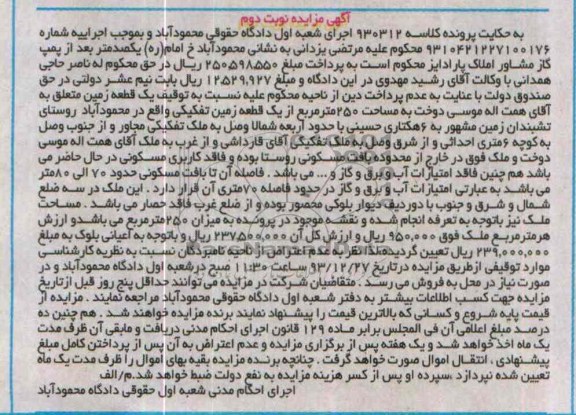 آگهی مزایده نوبت دوم
به حکایت پرونده کلاسه ۹۳۰۳۱۲ اجرای شعبه اول دادگاه حقوقی محمودآباد و بموجب اجراییه شماره
۹۳۱۰۴۲۱۲۲۷۱۰۰۱۷۶ محکوم علیه مرتضی یزدانی به نشانی محمودآباد خ امام(ره) یکصدمتر بعد از پمپ
گاز مشاور املاک پارادایز محکوم است به پرداخت مبلغ ۲۵۰۵۹۸۵۵۰ ریال در حق محکوم له ناصر حاجی
همدانی با وکالت آقای رشید مهدوی در این دادگاه و مبلغ ۱۲۵۲۹,۹۲۷ ریال بابت نیم عشر دولتی در حق
صندوق دولت با عنایت به عدم پرداخت دین از ناحیه محکوم علیه نسبت به توقیف یک قطعه زمین متعلق به
آقای همت اله موسی دوخت به مساحت ۲۵۰مترمربع از یک قطعه زمین تفکیکی واقع در محمودآباد روستای
تشبندان زمین مشهور به ۶هکتاری حسینی با حدود اربعه شمالا وصل به ملک تفکیکی مجاور و از جنوب وصل
به کوچه ۶متری احداثی و از شرق وصل به ملک تفکیکی آقای قارداشی و از غرب به ملک آقای همت اله موسی
دوخت و ملک فوق در خارج از محدوده بافت مسکونی روستا بوده و فاقد کاربری مسکونی در حال حاضر می
باشد هم چنین فاقد امتیازات آب و برق و گاز و... می باشد . فاصله آن تا بافت مسکونی حدود ۷۰ الی ۸۰متر
می باشد به عبارتی امتیازات آب و برق و گاز در حدود فاصله ۷۰متری آن قرار دارد . این ملک در سه ضلع
شمال و شرق و جنوب با دوردیف دیوار بلوکی محصور بوده و از ضلع غرب فاقد حصار می باشد . مساحت
ملک نیز باتوجه به تعرفه انجام شده و نقشه موجود در پرونده به میزان ۲۵۰مترمربع می باشدو ارزش
هرمترمربع ملک فوق ۹۵۰,۰۰۰ ریال و ارزش کل آن ۲۳۷۵۰۰,۰۰۰ ریال و باتوجه به اعیانی بلوک به مبلغ
۲۳۹,۰۰۰,۰۰۰ ریال تعیین گردیده،لذا نظر به عدم اعتراض از ناحیه نامبردگان نسبت به نظریه کارشناسی
موارد توقیفی ازطریق مزایده درتاریخ ۹۳/۱۲/۲۷ ساعت ۱۱:۳۰ صبح درشعبه اول دادگاه محمودآباد و در
صورت نیاز در محل به فروش می رسد . متقاضیان شرکت در مزایده می توانند حداقل پنج روز قبل ازتاریخ
مزایده جهت کسب اطلاعات بیشتر به دفتر شعبه اول دادگاه حقوقی محمودآباد مراجعه نمایند . مزایده از
قیمت پایه شروع و کسانی که بالاترین قیمت را پیشنهاد نمایند برنده مزایده خواهند شد . هم چنین ده
درصد مبلغ اعلامی آن فی المجلس برابر ماده ۱۲۹ قانون اجرای احکام مدنی دریافت و مابقی آن ظرف مدت
یک ماه اخذ خواهد شد و یک هفته پس از برگزاری مزایده و عدم اعتراض به آن پس از پرداختن کامل مبلغ
پیشنهادی ، انتقال اموال صورت خواهد گرفت . چنانچه برنده مزایده بقیه بهای اموال را ظرف مدت یک ماه
تعیین شده نپردازد ،سپرده او پس از کسر هزینه مزایده به نفع دولت ضبط خواهد شد.م/الف
اجرای احکام مدنی شعبه اول حقوقی دادگاه محمودآباد